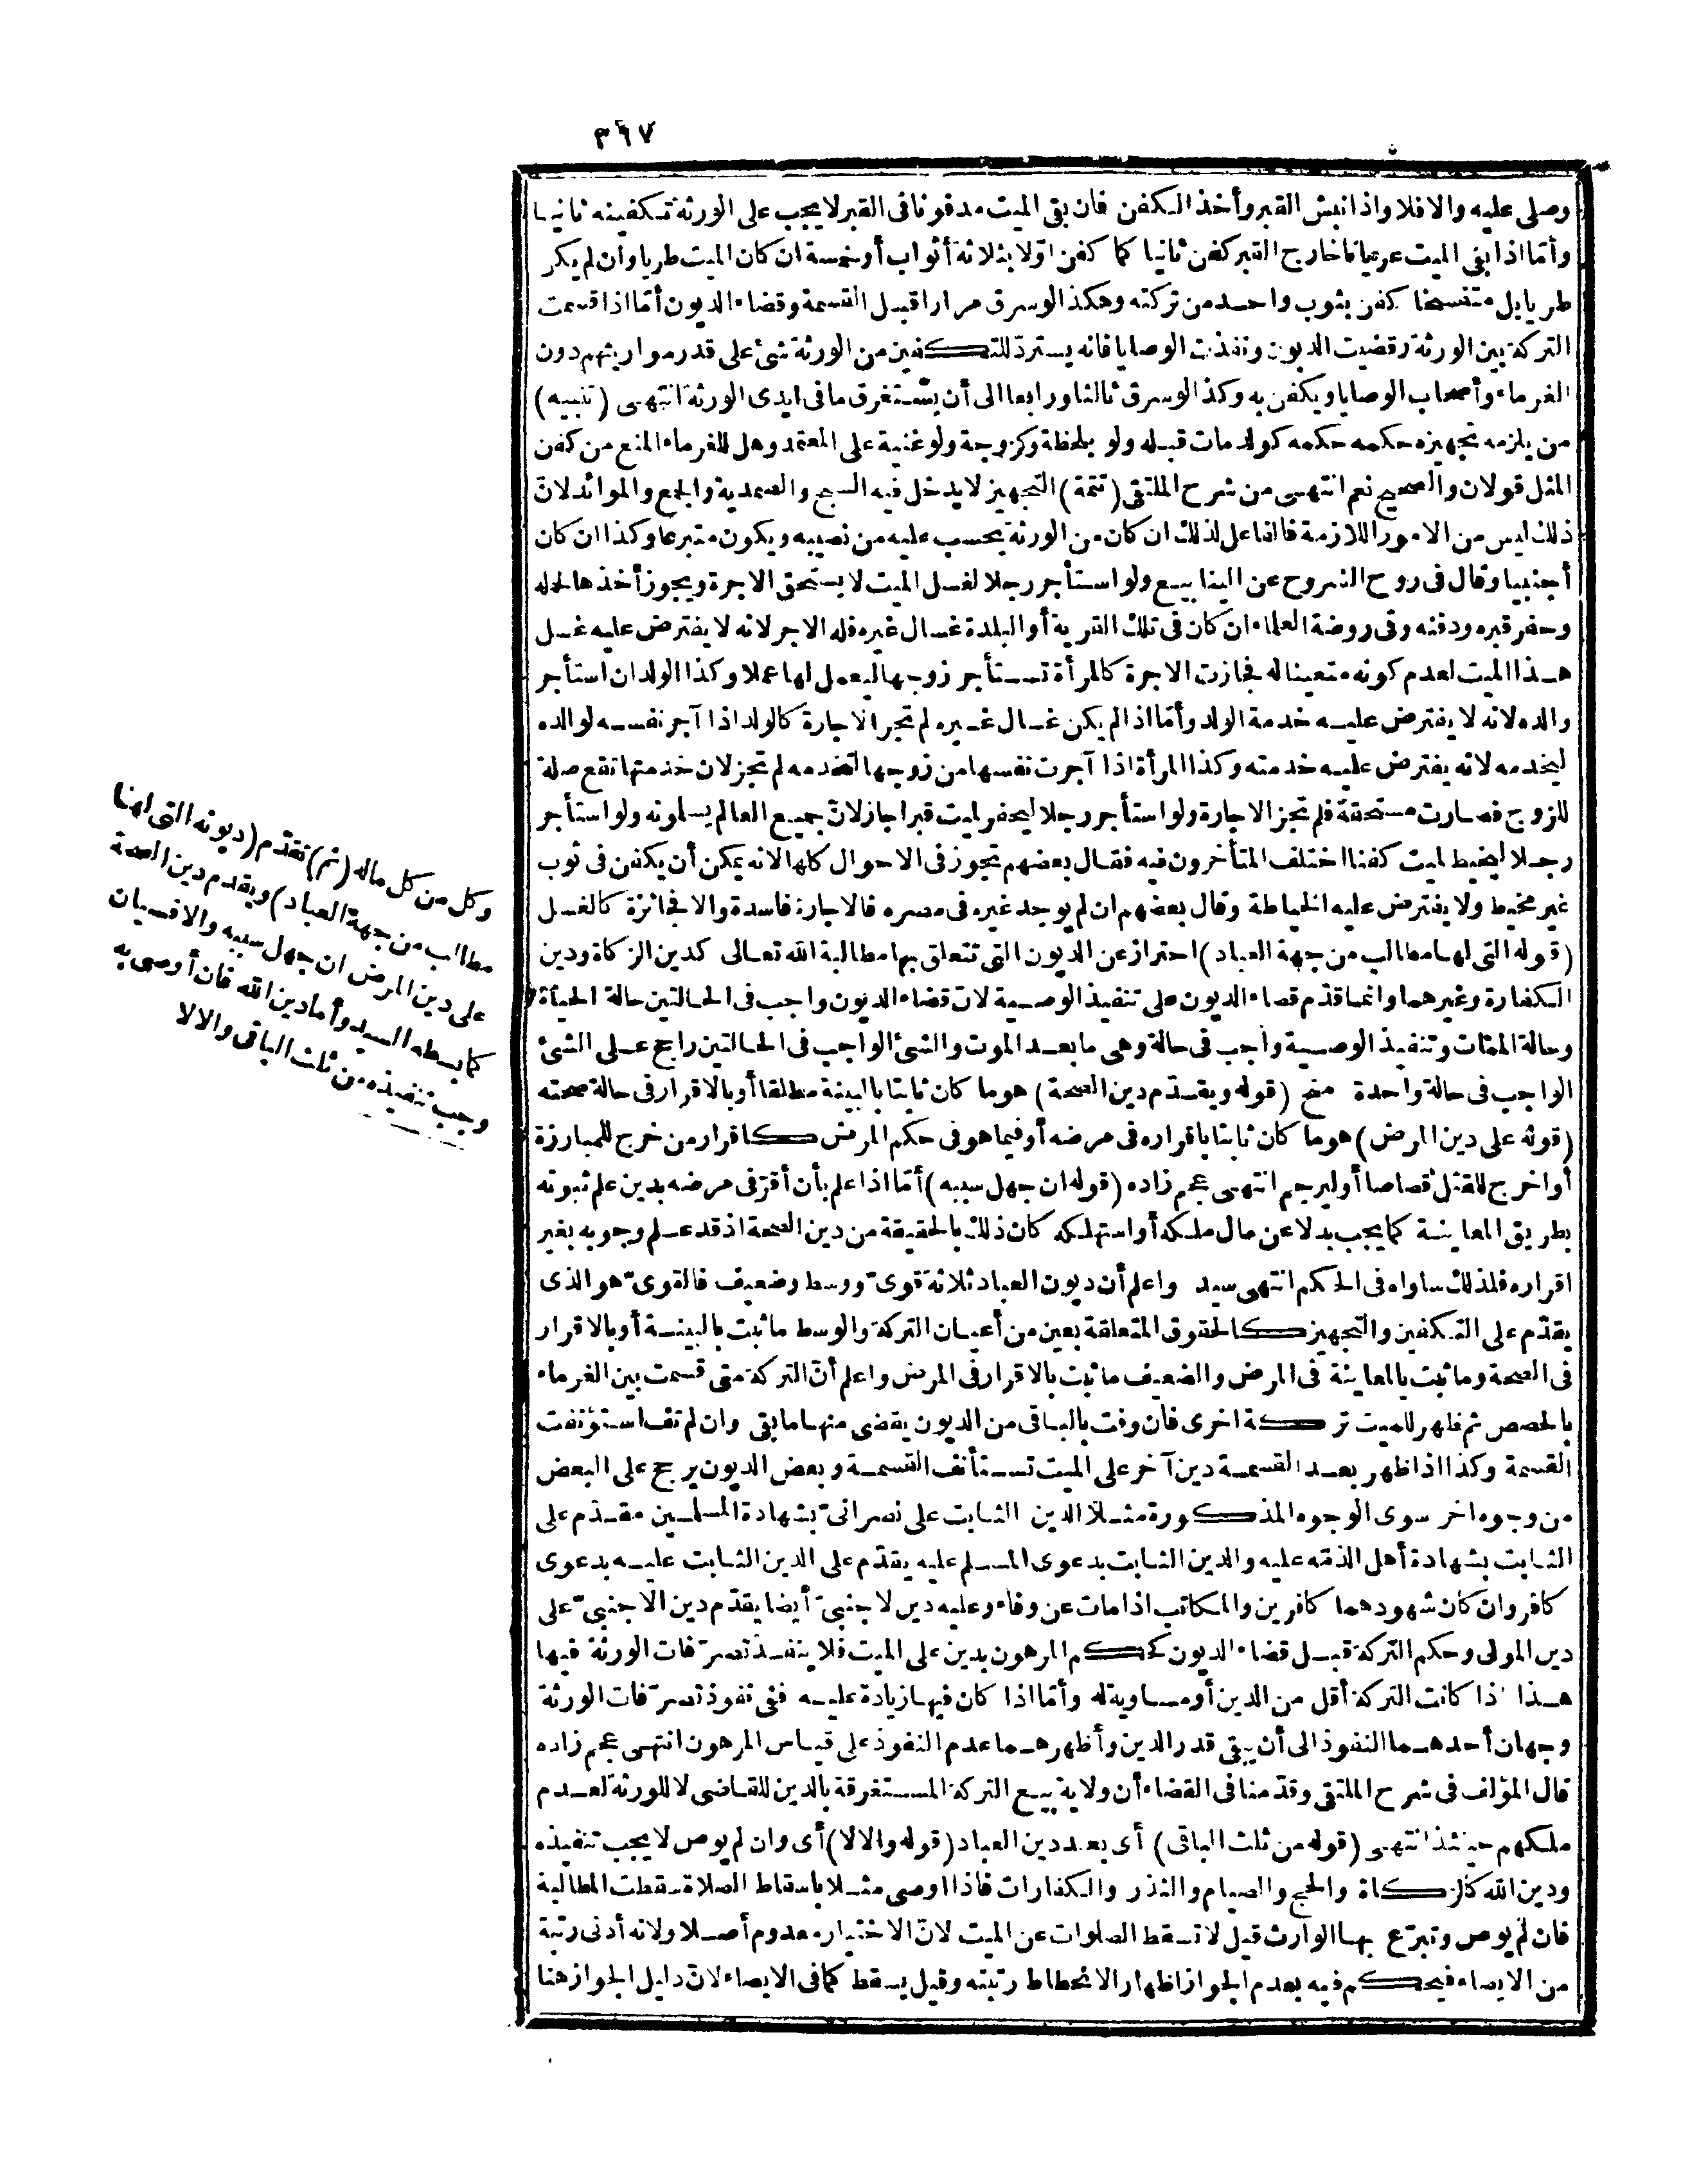 ٣٦٧
وصلى عليه والا فلا واذا نبش القبر وأخذ الكفن فان بقى الميت مدفونا فى القبر لا يجب على الورثة تكفينه ثانيا
وأمّا اذا بقى الميت عريانا خارج القبر كفن ثانيا كما كفن اوّلا بثلاثة أثواب أو خمسة ان كان الميت طريا وان لم يكن
طريا بل متفسخا كفن بثوب واحد من تركته وهكذا لو سرق مرارا قبل القسمة وقضاء الديون أمّا اذا قسمت
التركة بين الورثة وقضيت الديون ونفذت الوصايا فانه يستردّ للتكفين من الورثة شئ على قدر مواريثهم دون
الغرماء وأصحاب الوصايا ويكفن به وكذا لو سرق ثالثا ورابعا الى أن يستغرق ما فى ايدى الورثة انتهى (تنبيه)
من يلزمه تجهيزه حكمه حكمه كولد مات قبله ولو بلحظة وكزوجة ولو غنية على المعتمد وهل للغرماء المنع من كفن
المثل قولان والصحيح نعم انتهى من شرح الملتقى (تتمة) التجهيز لا يدخل فيه السبح والصمدية والجمع والموائد لانّ
ذلك ليس من الامور اللازمة فالفاعل لذلك ان كان من الورثة يحسب عليه من نصيبه ويكون متبرعا وكذا ان كان
أجنبيا وقال فى روح الشروح عن الينابيع ولو استأجر رجلا لغسل الميت لا يستحق الاجرة ويجوز أخذها لحمله
وحفر قبره ودفنه وفى روضة العلماء ان كان فى تلك القرية أو البلدة غسال غيره فله الاجر لانه لا يفترض عليه غسل
هذا الميت لعدم كونه متعينا له فجازت الاجرة كالمرأة تستأجر زوجها ليعمل لها عملا وكذا الولد ان استأجر
والده لانه لا يفترض عليه خدمة الولد وأمّا اذا لم يكن غسال غيره لم تجز الاجارة كالولد اذا آجر نفسه لوالده
ليخدمه لانه يفترض عليه خدمته وكذا المرأة اذا آجرت نفسها من زوجها لتخدمه لم تجز لان خدمتها تقع صلة
للزوج فصارت مستحقة فلم تجز الاجارة ولو استأجر رجلا ليحفر لميت قبرا جاز لانّ جميع العالم يسلمونه ولو استأجر
رجلا ليخيط لميت كفنا اختلف المتأخرون فيه فقال بعضهم تجوز فى الاحوال كلها لانه يمكن أن يكفن فى ثوب
غير مخيط ولا يفترض عليه الخياطة وقال بعضهم ان لم يوجد غيره فى مصره فالاجارة فاسدة والا فجائزة كالغسل
(قوله التى لها مطالب من جهة العباد) احتراز عن الديون التى تتعلق بها مطالبة الله تعالى كدين الزكاة ودين
الكفارة وغيرهما وانما قدّم قضاء الديون على تنفيذ الوصية لانّ قضاء الديون واجب فى الحالتين حالة الحياة
وحالة الممات وتنفيذ الوصية واجب فى حالة وهى ما بعد الموت والشئ الواجب فى الحالتين راجح على الشئ
الواجب فى حالة واحدة منح (قوله ويقدّم دين الصحة) هو ما كان ثابتا بالبينة مطلقا أو بالاقرار فى حالة صحته
(قوله على دين المرض) هو ما كان ثابتا باقراره فى مرضه أو فيما هو فى حكم المرض كاقرار من خرج للمبارزة
أو اخرج للقتل قصاصا أو ليرجم انتهى عجم زاده (قوله ان جهل سببه) أمّا اذا علم بأن أقرّ فى مرضه بدين علم ثبوته
بطريق المعاينة كما يجب بدلا عن مال ملكه أو استهلكه كان ذلك بالحقيقة من دين الصحة اذ قد علم وجوبه بغير
اقراره فلذلك ساواه فى الحكم انتهى سيد واعلم أن ديون العباد ثلاثة قوىّ ووسط وضعيف فالقوىّ هو الذى
يقدّم على التكفين والتجهيز كالحقوق المتعلقة بعين من أعيان التركة والوسط ما ثبت بالبينة أو بالاقرار
فى الصحة وما ثبت بالمعاينة فى المرض والضعيف ما ثبت بالاقرار فى المرض واعلم أنّ التركة متى قسمت بين الغرماء
بالحصص ثم ظهر للميت تركة اخرى فان وفت بالباقى من الديون يقضى منها ما بقى وان لم تف استؤنفت
القسمة وكذا اذا ظهر بعد القسمة دين آخر على الميت تستأنف القسمة وبعض الديون يرجح على البعض
من وجوه اخر سوى الوجوه المذكورة مثلا الدين الثابت على نصرانىّ بشهادة المسلمين مقدّم على
الثابت بشهادة أهل الذمّة عليه والدين الثابت بدعوى المسلم عليه يقدّم على الدين الثابت عليه بدعوى
كافر وان كان شهودهما كافرين والمكاتب اذا مات عن وفاء وعليه دين لاجنبىّ أيضا يقدّم دين الاجنبىّ على
دين المولى وحكم التركة قبل قضاء الديون كحكم المرهون بدين على الميت فلا ينفذ تصرّفات الورثة فيها
هذا اذا كانت التركة أقل من الدين أو مساوية له وأمّا اذا كان فيها زيادة عليه ففى نفوذ تصرّفات الورثة
وجهان أحدهما النفوذ الى أن يبقى قدر الدين وأظهرهما عدم النفوذ على قياس المرهون انتهى عجم زاده
قال المؤلف فى شرح الملتقى وقدّمنا فى القضاء أن ولاية بيع التركة المستغرقة بالدين للقاضى لا للورثة لعدم
ملكهم حينئذ انتهى (قوله من ثلث الباقى) أى بعد دين العباد (قوله والا لا) أى وان لم يوص لا يجب تنفيذه
ودين الله كالزكاة والحج والصيام والنذر والكفارات فاذا اوصى مثلا باسقاط الصلاة سقطت المطالبة
فان لم يوص وتبرّع بها الوارث قيل لا تسقط الصلوات عن الميت لانّ الاختيار معدوم أصلا ولانه أدنى رتبة
من الايصاء فيحكم فيه بعدم الجواز اظهارا لانحطاط رتبته وقيل يسقط كما فى الايصاء لانّ دليل الجواز هنا
وكل من كل ماله (ثم) تقدّم (ديونه التى لها
مطالب من جهة العباد) ويقدم دين الصحة
على دين المرض ان جهل سببه والا فسيان
كما بسطه السيد وأما دين الله فان أوصى به
وجب تنفيذه من ثلث الباقى والا لا